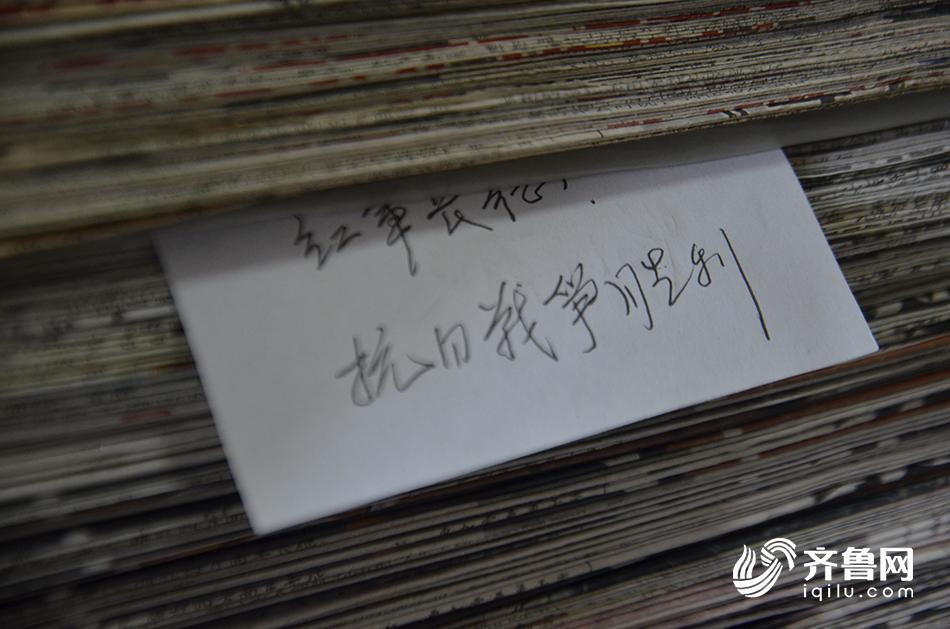 红军长征.
抗日战争胜利
齐鲁网
iqilu.com